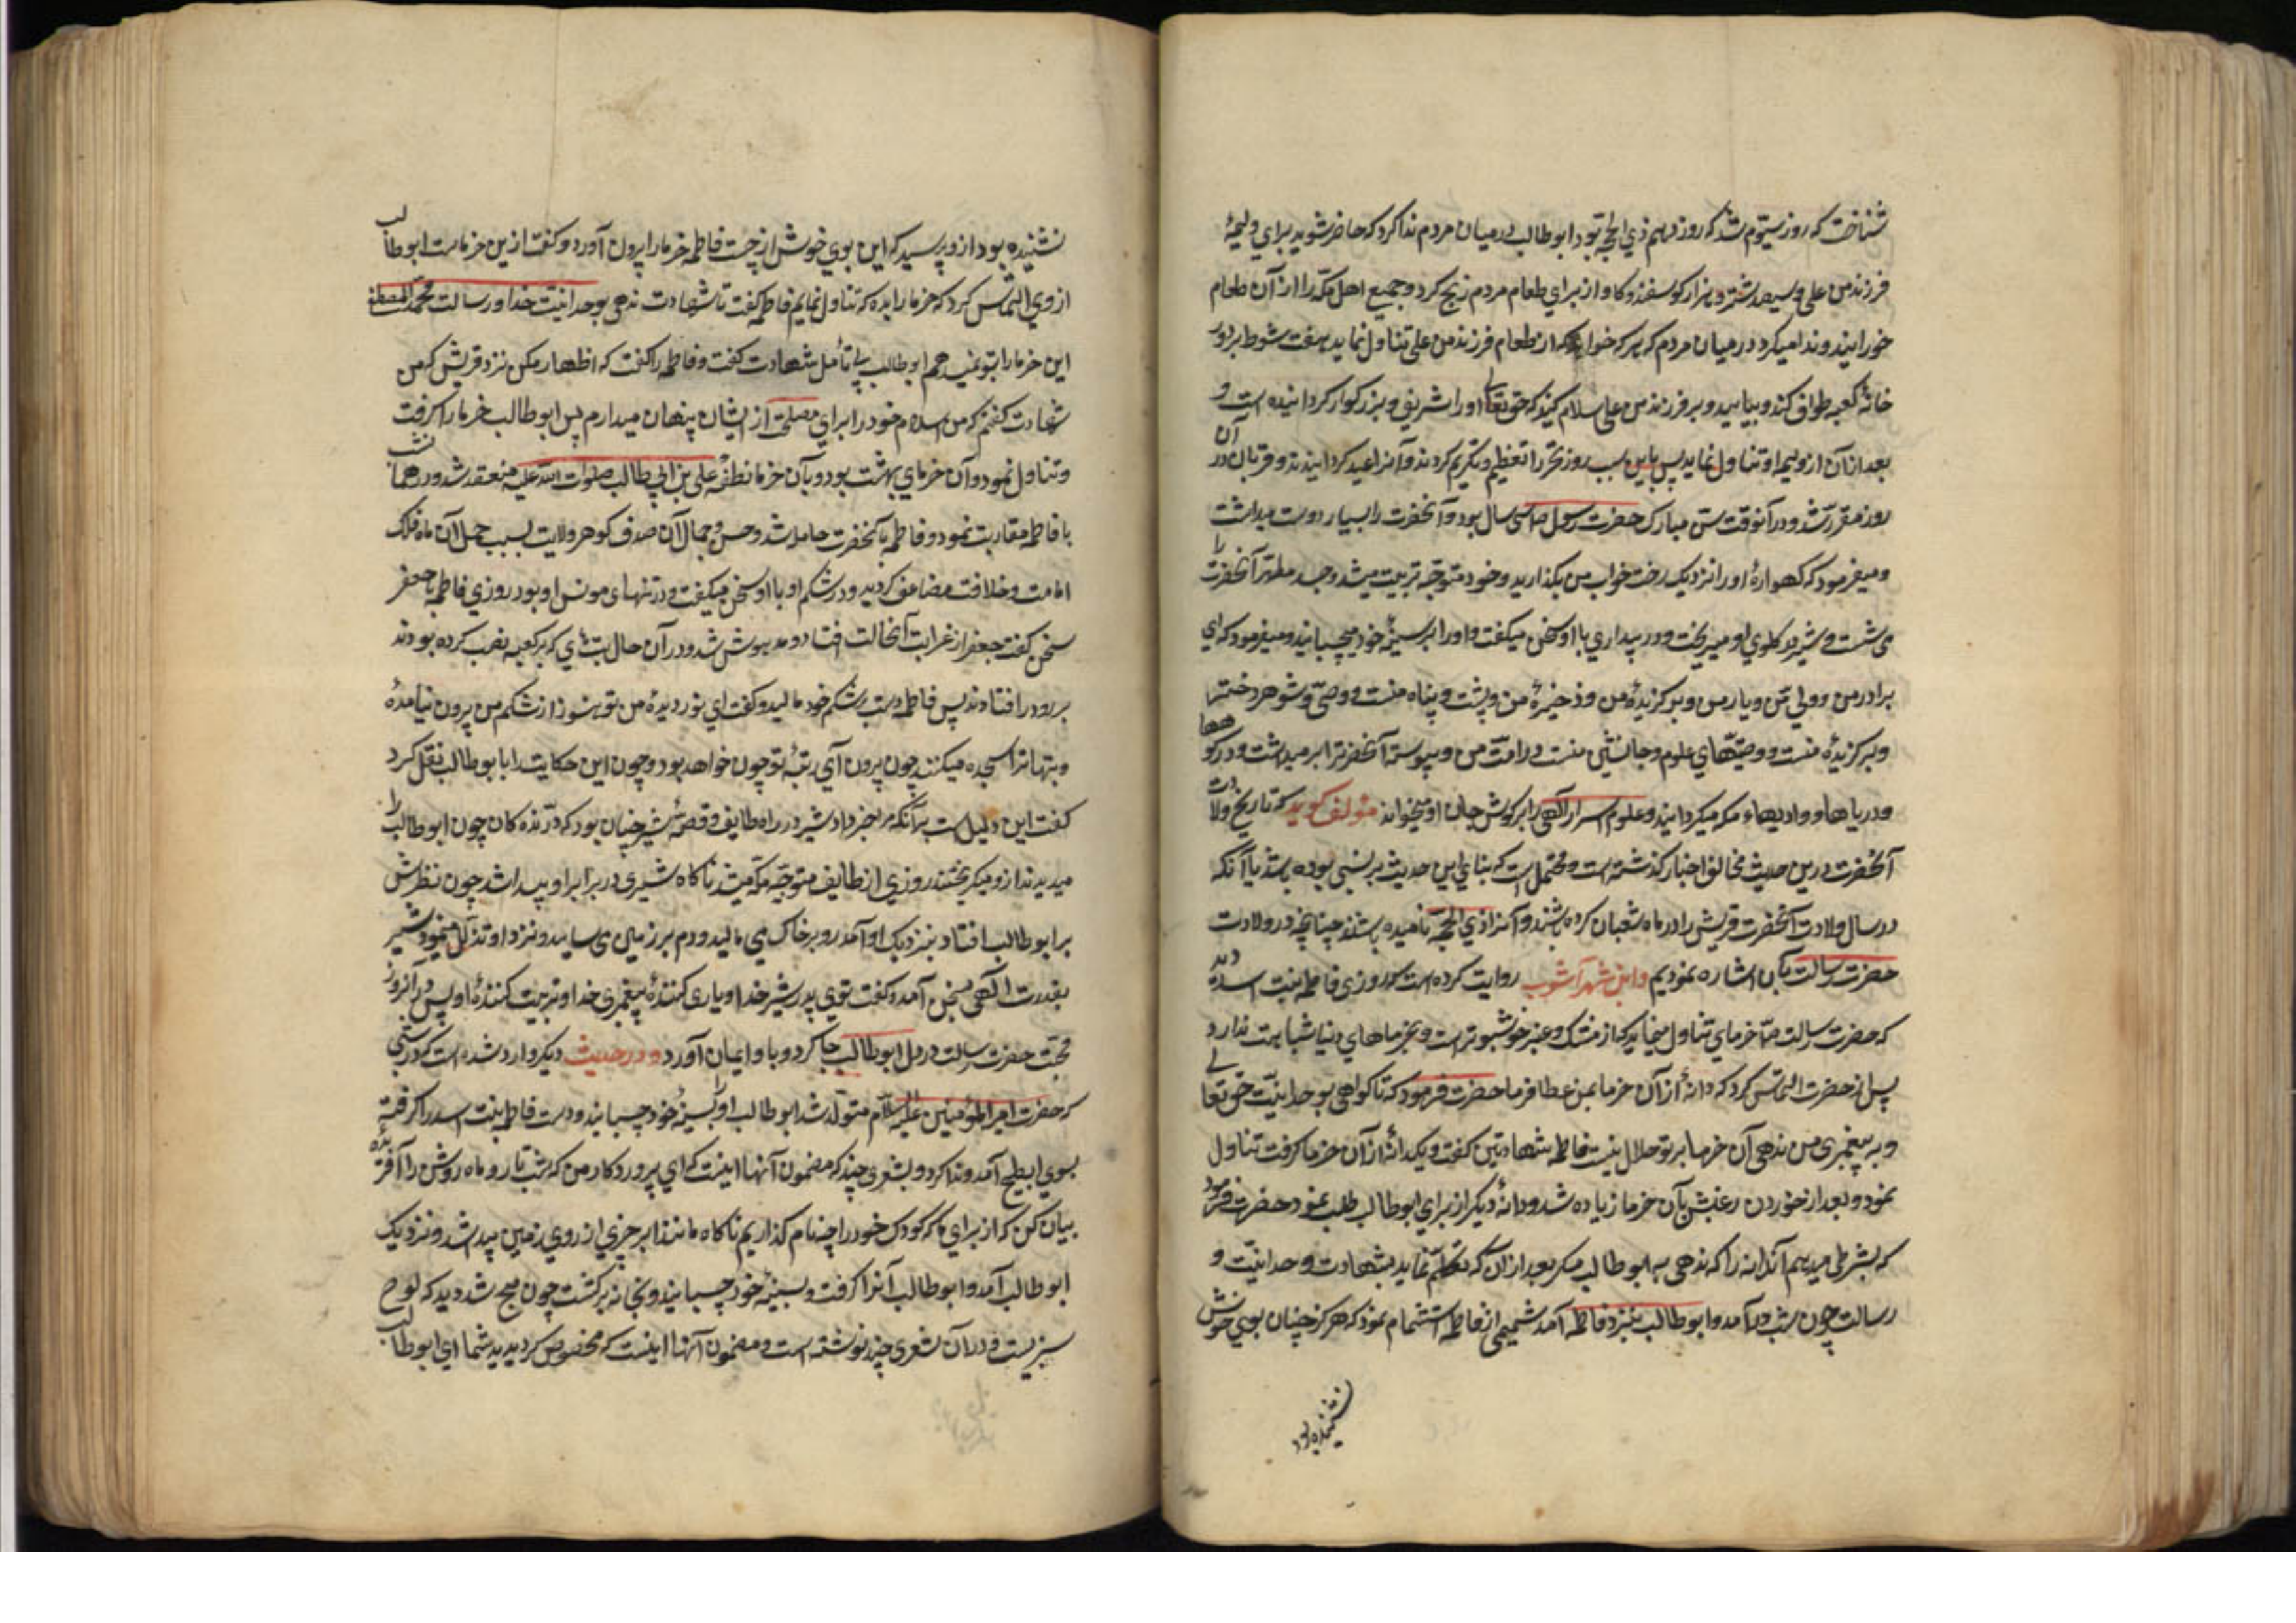 شناخت که روز سیّوم شد که روز دهم ذي الحجّه بود ابو طالب در میان مردم ندا کرد که حاضر شوید برای ولیمهٔ
فرزند من علی و سیصد شتر و هزار کوسفند و کاو از براي طعام مردم ذبح کرد و جمیع اهل مکّه را از آن طعام
خورانیند و ندا میکرد در میان مردم که هر که خواهد که از طعام فرزند من علی تناول نماید هفت شوط بر دور
خانهٔ کعبه طواف کند و بیاید و بر فرزند من علی سلام کند که حق تعالی او را شریف و بزرکوار کردانیده است و
بعد از آن از ولیمه او تناول نماید پس باین سبب روز نحر را تعظیم و تکریم کردند و آنرا عید کردانیدند و قربان در آن
روز مقرر شد و در آنوقت سنّ مبارک حضرت رسول ص سی سال بود و آنحضرت را بسیار دوست میداشت
و میفرمود که کهوارهٔ او را نزدیک رخت خواب من بکذارید و خود متوجّه تربیت میشد و جسد مطهّر آنحضرت را
می شست و شیر در کلوي او میریخت و در بیداري با او سخن میکفت و او را بر سینهٔ خود میچسبانید و میفرمود که ای
برادر من و ولي من و یار من و برکزیدهٔ من و ذخیرهٔ من و پشت و پناه منست و وصیّ و شوهر دختر
و برکزیدهٔ منست و وصیّتهاي علوم و جانشین منست در امّت من و پیوسته آنحضرت را بر میداشت و در کوهها
و دریاها و وادیهاء مکه میکردانید و علوم اسرار آلهی را بر کوش جان او میخواند مؤلف کوید که تاریخ ولادت
آنحضرت درین حدیث مخالف اخبار کذشته است و محتمل است که بنای این حدیث بر نسی بوده باشد یا آنکه
در سال ولادت آنحضرت قریش را در ماه شعبان کرده باشند و آنرا ذي الحجّه نامیده باشند چنانچه در ولادت
حضرت رسالت بآن اشاره نمودیم و ابن شهر آشوب روایت کرده است که روزی فاطمه بنت اسد دید
که حضرت رسالت ص خرماي تناول مینماید که از مشک و عنبر خوشبو تر است و بخرماهاي دنیا شباهت ندارد
پس از حضرت التماس کرد که دانهٔ از آن خرما بمن عطا فرما حضرت فرمود که تا کواهی بوحدانیّت حق تعالی
و به پیغمبری من ندهی آن خرما بر تو حلال نیست فاطمه شهادتین کفت و یکدانهٔ از آن خرما کرفت تناول
نمود و بعد از خوردن رغبتش بآن خرما زیاده شد و دانهٔ دیکر از برای ابو طالب طلب نمود حضرت فرمود
که بشرطی میدهم آندانه را که ندهی به ابو طالب مکر بعد از آن که تکلم نماید بشهادت وحدانیّت و
رسالت چون شب در آمد و ابو طالب بنزد فاطمه آمد شمیمی از فاطمه استشمام نمود که هرکز چنان بویی خوش
نشنیده بود
نشنیده بود از و پرسید که این بوي خوش از چیست فاطمه خرما را بیرون آورد و کفت ازین خرماست ابو طالب
از وي التماس کرد که خرما را بده که تناول نمایم فاطمه کفت تا شهادت ندهی بوحدانیّت خدا و رسالت محمد المصطفی
این خرما را بتو نمیدهم ابو طالب بي تأمل شهادت کفت و فاطمه را کفت که اظهار مکن نزد قریش که من
شهادت کفتم که من اسلام خود را برای مصلحتی از ایشان پنهان میدارم پس ابو طالب خرما را کرفت
و تناول نمود و آن خرماي بهشت بود و بآن خرما نطفهٔ علی بن ابی طالب صلوات الله علیه منعقد شد و در همان شب
با فاطمه مقاربت نمود و فاطمه بآنحضرت حامله شد و حسن و جمال آن صدف کوهر ولایت بسبب حمل آن ماه فلک
امامت و خلافت مضاعف کردید و در شکم او با او سخن میکفت و در تنهای مونس او بود روزي فاطمه با جعفر
سخن کفت جعفر از غرابت آنحالت افتاد و مدهوش شد و در آن حال بت ها ي که بر کعبه نصب کرده بودند
بر رو در افتادند پس فاطمه دست بر شکم خود مالید و کفت اي نور دیدهٔ من تو هنوز از شکم من بیرون نیامدهٔ
و بتها ترا سجده میکنند چون بیرون آی رتبهٔ تو چون خواهد بود و چون این حکایت را با بو طالب نقل کرد
کفت این دلیل است بر آنکه مرا خبر داد شیر در راه طایف و قصهٔ شیر چنان بود که درنده کان چون ابو طالب را
میدیدند از و میکریختند روزي از طایف متوجّه مکّه میشد ناکاه شیری در برابر او پیدا شد چون نظرش
بر ابو طالب افتاد بنزدیک او آمد رو بر خاک می مالید و دم بر زمین می سایید و نزد او تذلّل مینمود شیر
بقدرت الهی بسخن آمد و کفت توی پدر شیر خدا و یاری کنندهٔ پیغمبری خدا و تربیت کنندهٔ او پس در آنروز
محبّت حضرت رسالت در دل ابو طالب جا کرد و با و ایمان آورد و در حدیث دیکر وارد شده است که در شبی
که حضرت امیر المؤمنین علیه السلام متولّد شد ابو طالب او را بسینهٔ خود چسبانید و دست فاطمه بنت اسد را کرفته
بسوي ابطح آمد و ندا کرد و بشعری چند که مضمون آنها اینست که اي پروردکار من که شب تار و ماه روشن را آفریدهٔ
بیان کن که از برای ما که کودک خود را چه نام کذاریم ناکاه مانند ابر چیزي از روي زمین پیدا شد و نزدیک
ابو طالب آمد و ابو طالب آنرا کرفت و بسینهٔ خود چسبانید و بخانه برکشت چون صبح شد دید که لوح
سبزیست و در آن شعری چند نوشته است و مضمون آنها اینست که مخصوص کردیدید شما ای ابو طالب